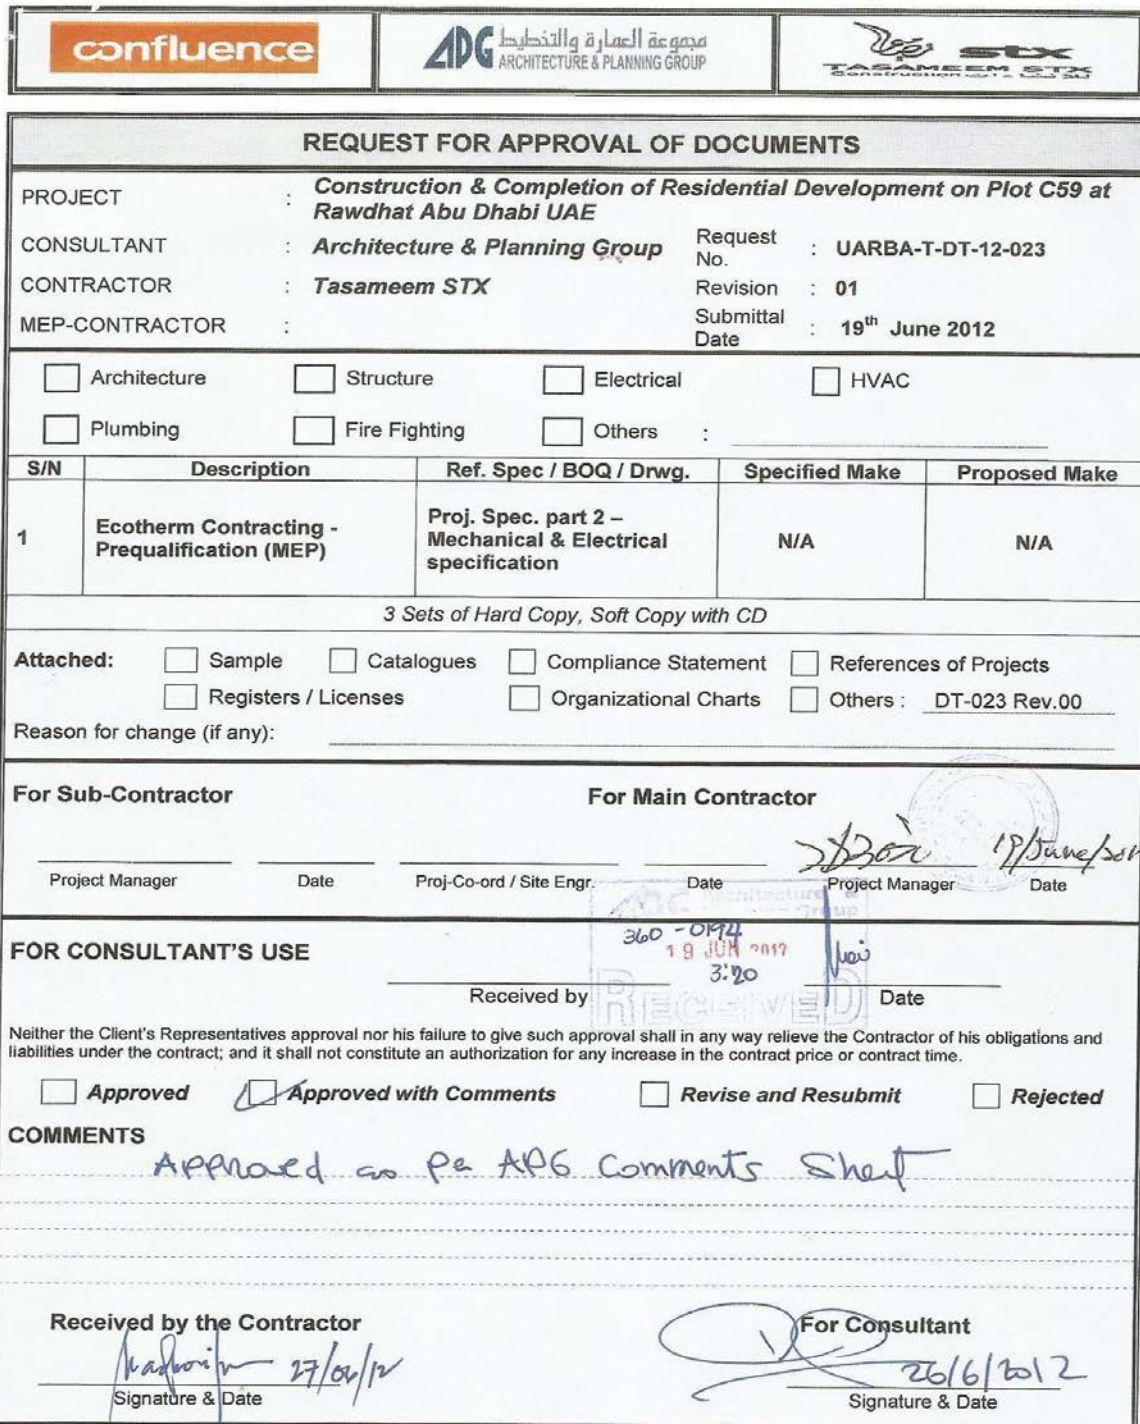 confluence
APG مجموعة العمارة والتخطيط
ARCHITECTURE & PLANNING GROUP
stx
TASAMEEM STX
Construction
REQUEST FOR APPROVAL OF DOCUMENTS
PROJECT : Construction & Completion of Residential Development on Plot C59 at
Rawdhat Abu Dhabi UAE
CONSULTANT : Architecture & Planning Group Request No. : UARBA-T-DT-12-023
CONTRACTOR : Tasameem STX Revision : 01
MEP-CONTRACTOR : Submittal Date : 19th June 2012
Architecture Structure Electrical HVAC
Plumbing Fire Fighting Others :
S/N Description Ref. Spec / BOQ / Drwg. Specified Make Proposed Make
1 Ecotherm Contracting - Prequalification (MEP) Proj. Spec. part 2 – Mechanical & Electrical specification N/A N/A
3 Sets of Hard Copy, Soft Copy with CD
Attached: Sample Catalogues Compliance Statement References of Projects
Registers / Licenses Organizational Charts Others : DT-023 Rev.00
Reason for change (if any):
For Sub-Contractor For Main Contractor
19/June/201
Project Manager Date Proj-Co-ord / Site Engr. Date Project Manager Date
APG Architecture &
Group
FOR CONSULTANT'S USE
360-0194
19 JUN 2012
3:20
RECEIVED
Received by Date
Neither the Client's Representatives approval nor his failure to give such approval shall in any way relieve the Contractor of his obligations and
liabilities under the contract; and it shall not constitute an authorization for any increase in the contract price or contract time.
Approved Approved with Comments Revise and Resubmit Rejected
COMMENTS
Approved as pe APG Comments Sheet
Received by the Contractor For Consultant
27/06/12 26/6/2012
Signature & Date Signature & Date